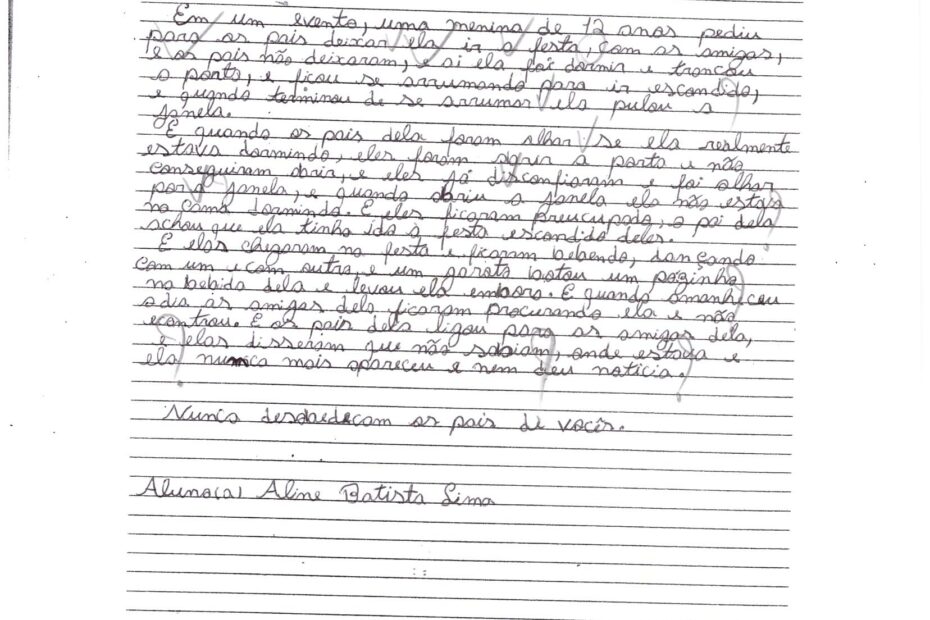 Em um evento, uma menina de 12 anos pediu
para os pais deixar ela ir a festa, com as amigas,
e os pais não deixaram, e ai ela foi dormir e trancou
a porta, e ficou se arrumando para ir escondida,
e quando terminou de se arrumar ela pulou a
janela.
E quando os pais dela foram olhar se ela realmente
estava dormindo, eles foram abrir a porta e não
conseguiram abrir, e eles já disconfiaram e foi olhar
para janela, e quando abriu a janela ela não estava
na cama dormindo. E eles ficaram preucupado, o pai dela
achou que ela tinha ido a festa escondida deles.
E elas chegaram na festa e ficaram bebendo, dançando
com um e com outra, e um garoto botou um pozinho
na bebida dela e levou ela embora. E quando amanheceu
o dia as amigas dela ficaram procurando ela e não
econtrou. E os pais dela ligou para as amigas dela,
e elas disseram que não sabiam, onde estava e
ela nunca mais apareceu e nem deu noticia.
Nunca desobedecam os pais de vocês.
Aluno(a) Aline Batista Lima